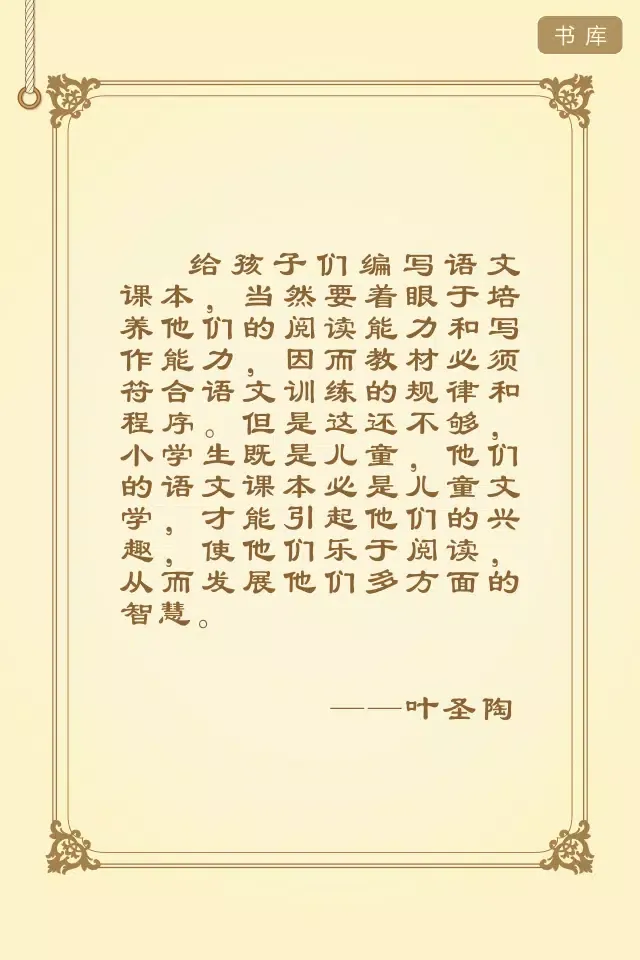 书库
给孩子们编写语文
课本，当然要着眼于培
养他们的阅读能力和写
作能力，因而教材必须
符合语文训练的规律和
程序。但是这还不够，
小学生既是儿童，他们
的语文课本必是儿童文
学，才能引起他们的兴
趣，使他们乐于阅读，
从而发展他们多方面的
智慧。
——叶圣陶